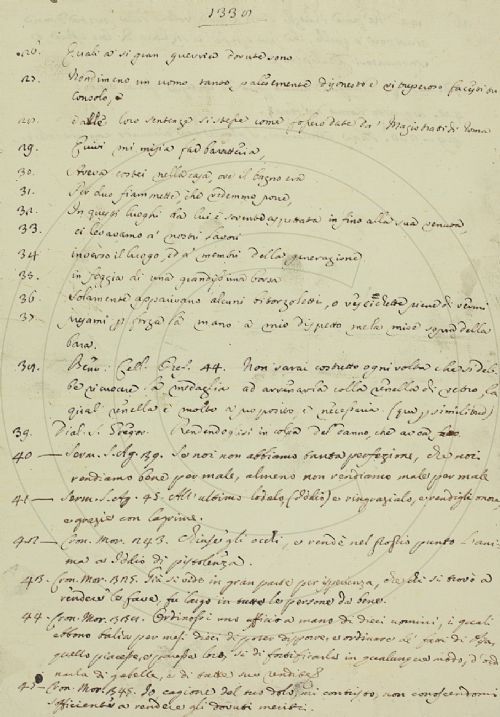 1339
26. Quali a si gran guerrie dovute sono
27. Nondimeno un uomo tanto palesemente disonesto e vituperoso facessi
Consolo, e
alle loro sentenze si stesse come fossero date da' Magistrati di Roma
29. Quivi mi misi a far baratteria,
30. Aveva costei nella casa, ove il bagno era
31. Per due fiammette, che vedemmo porre,
32. In questi luoghi da lui è sovente aspettata in fino alla sua venuta,
33. ci levavamo a' nostri lavori
34 inverso il luogo, ed a' membri della generazione
35. in foggia di una grandissima borsa
36. Solamente apparivano alcuni bitorzoletti, o vesciche piene di vermi
37. per forza la mano a mio dispetto me la mise sopra della
bara.
38. Benv: Cell: Oref. 44. Non sarai costretto ogni volta che si deb-
be vuocare la medaglia ad arruvarla colla renella di vetro, la
qual renella è molto a proposito, e necessaria (qui per similitud)
39. Dial. S. Gregor. Rendendogisi in colpa del danno, che avea
40 — Serm. S. Ag. 39. Se noi non abbiamo tanta perfezione, che noi
rendiamo bene per male, almeno non rendiamo male per male
41 — Serm. S. Ag. 45. All' ultimo lodalo, (Iddio) e ringrazialo, e rendigli onore,
e grazie con lagrime.
42 — Cron. Mor. 243. Chiuse gli occhi, e rendè nel stesso punto l'ani-
ma a Iddio di pistolenza.
43. Cron. Mor. 325. Già si vide in gran parte per isperienza, che chi si trovò a
rendere le fave, fu largo in tutte le persone da bene.
44. Cron. Mor. 354. Ordinossi uno ufficio a mano di dieci uomini, i quali
ebbono balìa per mesi dieci di poter disporre, e ordinare de' fatti di Pisa,
quello piacesse, e paresse loro, sì di fortificarla in qualunque modo, d'or-
dinarla di gabelle, e di tutte sue rendite
45 — Cron. Mor. 345. Io cagione del tuo dolo, mi contristo, non conoscendomi
sofficiente a rendere gli dovuti meriti.